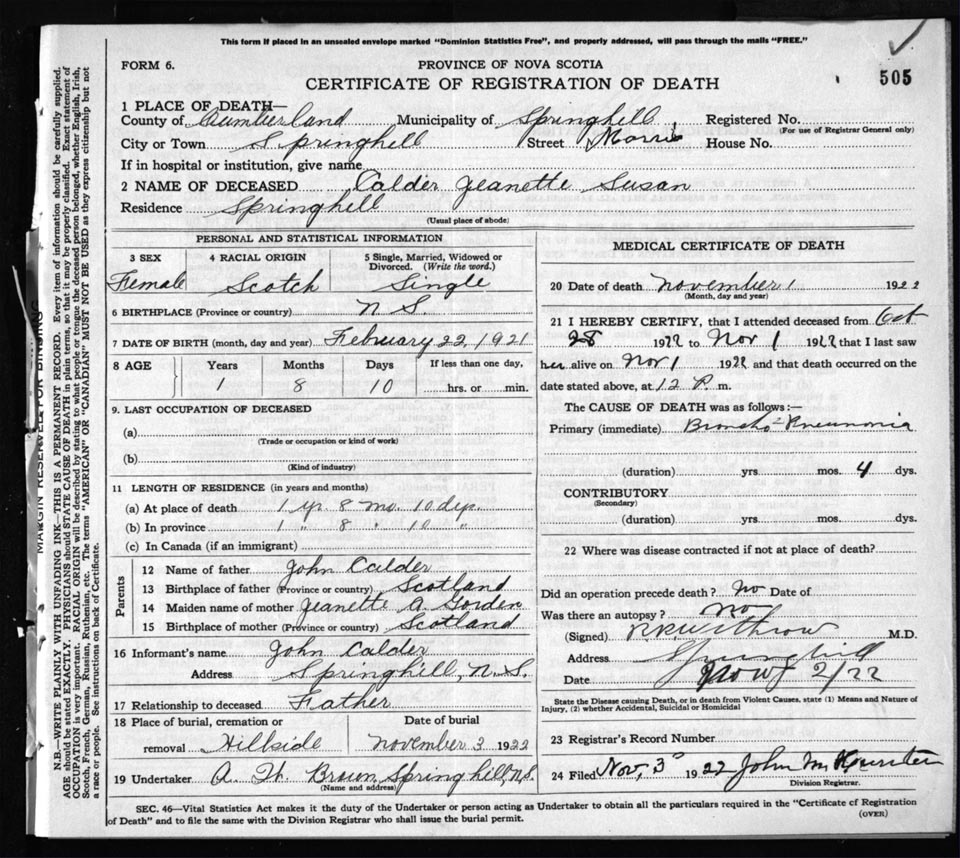 This form if placed in an unsealed envelope marked "Dominion Statistics Free", and properly addressed, will pass through the mails "FREE."
FORM 6.
PROVINCE OF NOVA SCOTIA
CERTIFICATE OF REGISTRATION OF DEATH
505
1 PLACE OF DEATH—
County of Cumberland Municipality of Springhill Registered No.
(For use of Registrar General only)
City or Town Springhill Street Morris House No.
If in hospital or institution, give name
2 NAME OF DECEASED Calder Jeanette Susan
Residence Springhill
(Usual place of abode)
PERSONAL AND STATISTICAL INFORMATION
3 SEX 4 RACIAL ORIGIN 5 Single, Married, Widowed or Divorced. (Write the word.)
Female Scotch Single
6 BIRTHPLACE (Province or country) N S.
7 DATE OF BIRTH (month, day and year) February 22, 1921
8 AGE Years Months Days If less than one day,
1 8 10 hrs. or min.
9. LAST OCCUPATION OF DECEASED
(a)
(Trade or occupation or kind of work)
(b)
(Kind of industry)
11 LENGTH OF RESIDENCE (in years and months)
(a) At place of death 1 yr. 8 mo. 10 dys.
(b) In province 1 " 8 " 10 "
(c) In Canada (if an immigrant)
Parents
12 Name of father John Calder
13 Birthplace of father (Province or country) Scotland
14 Maiden name of mother Jeanette A. Gorden
15 Birthplace of mother (Province or country) Scotland
16 Informant's name John Calder
Address Springhill, N.S.
17 Relationship to deceased Father
18 Place of burial, cremation or Date of burial
removal Hillside November 3 1922
19 Undertaker A. Brown, Springhill, N.S.
(Name and address)
MEDICAL CERTIFICATE OF DEATH
20 Date of death November 1 1922
(Month, day and year)
21 I HEREBY CERTIFY, that I attended deceased from Oct
28 1922 to Nov 1 1922 that I last saw
her alive on Nov 1 1922 and that death occurred on the
date stated above, at 12 P. m.
The CAUSE OF DEATH was as follows:—
Primary (immediate) Broncho Pneumonia
(duration) yrs. mos. 4 dys.
CONTRIBUTORY
(Secondary)
(duration) yrs. mos. dys.
22 Where was disease contracted if not at place of death?
Did an operation precede death? No Date of
Was there an autopsy? No
(Signed) M.D.
Address Springhill
Date Nov 2/22
State the Disease causing Death, or in death from Violent Causes, state (1) Means and Nature of
Injury, (2) whether Accidental, Suicidal or Homicidal
23 Registrar's Record Number
24 Filed Nov, 3 1922 John
Division Registrar.
SEC. 46—Vital Statistics Act makes it the duty of the Undertaker or person acting as Undertaker to obtain all the particulars required in the "Certificate of Registration
of Death" and to file the same with the Division Registrar who shall issue the burial permit.
(OVER)
MARGIN RESERVED FOR BINDING
N.B.—WRITE PLAINLY WITH UNFADING INK—THIS IS A PERMANENT RECORD. Every item of information should be carefully supplied.
AGE should be stated EXACTLY. PHYSICIANS should STATE CAUSE OF DEATH in plain terms, so that it may be properly classified. Exact statement of
OCCUPATION is very important. RACIAL ORIGIN will be described by stating to what people or tongue the deceased person belonged, whether English, Irish,
Scotch, French, German, Russian, Ruthenian, etc. The terms "AMERICAN" OR "CANADIAN" MUST NOT BE USED as they express citizenship but not
a race or people. See instructions on back of Certificate.